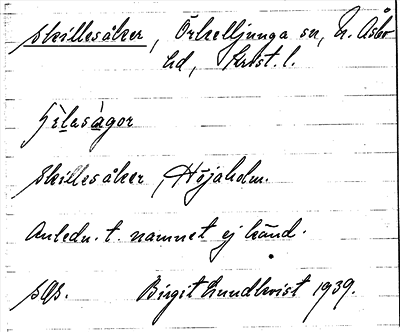 Skillesåker, Örkelljunga sn, N. Åsbo
hd, Krist. l.
Skillesåker, Höjaholm.
Anledn. t. namnet ej känd.
sgs. Birgit Lundkvist 1939.